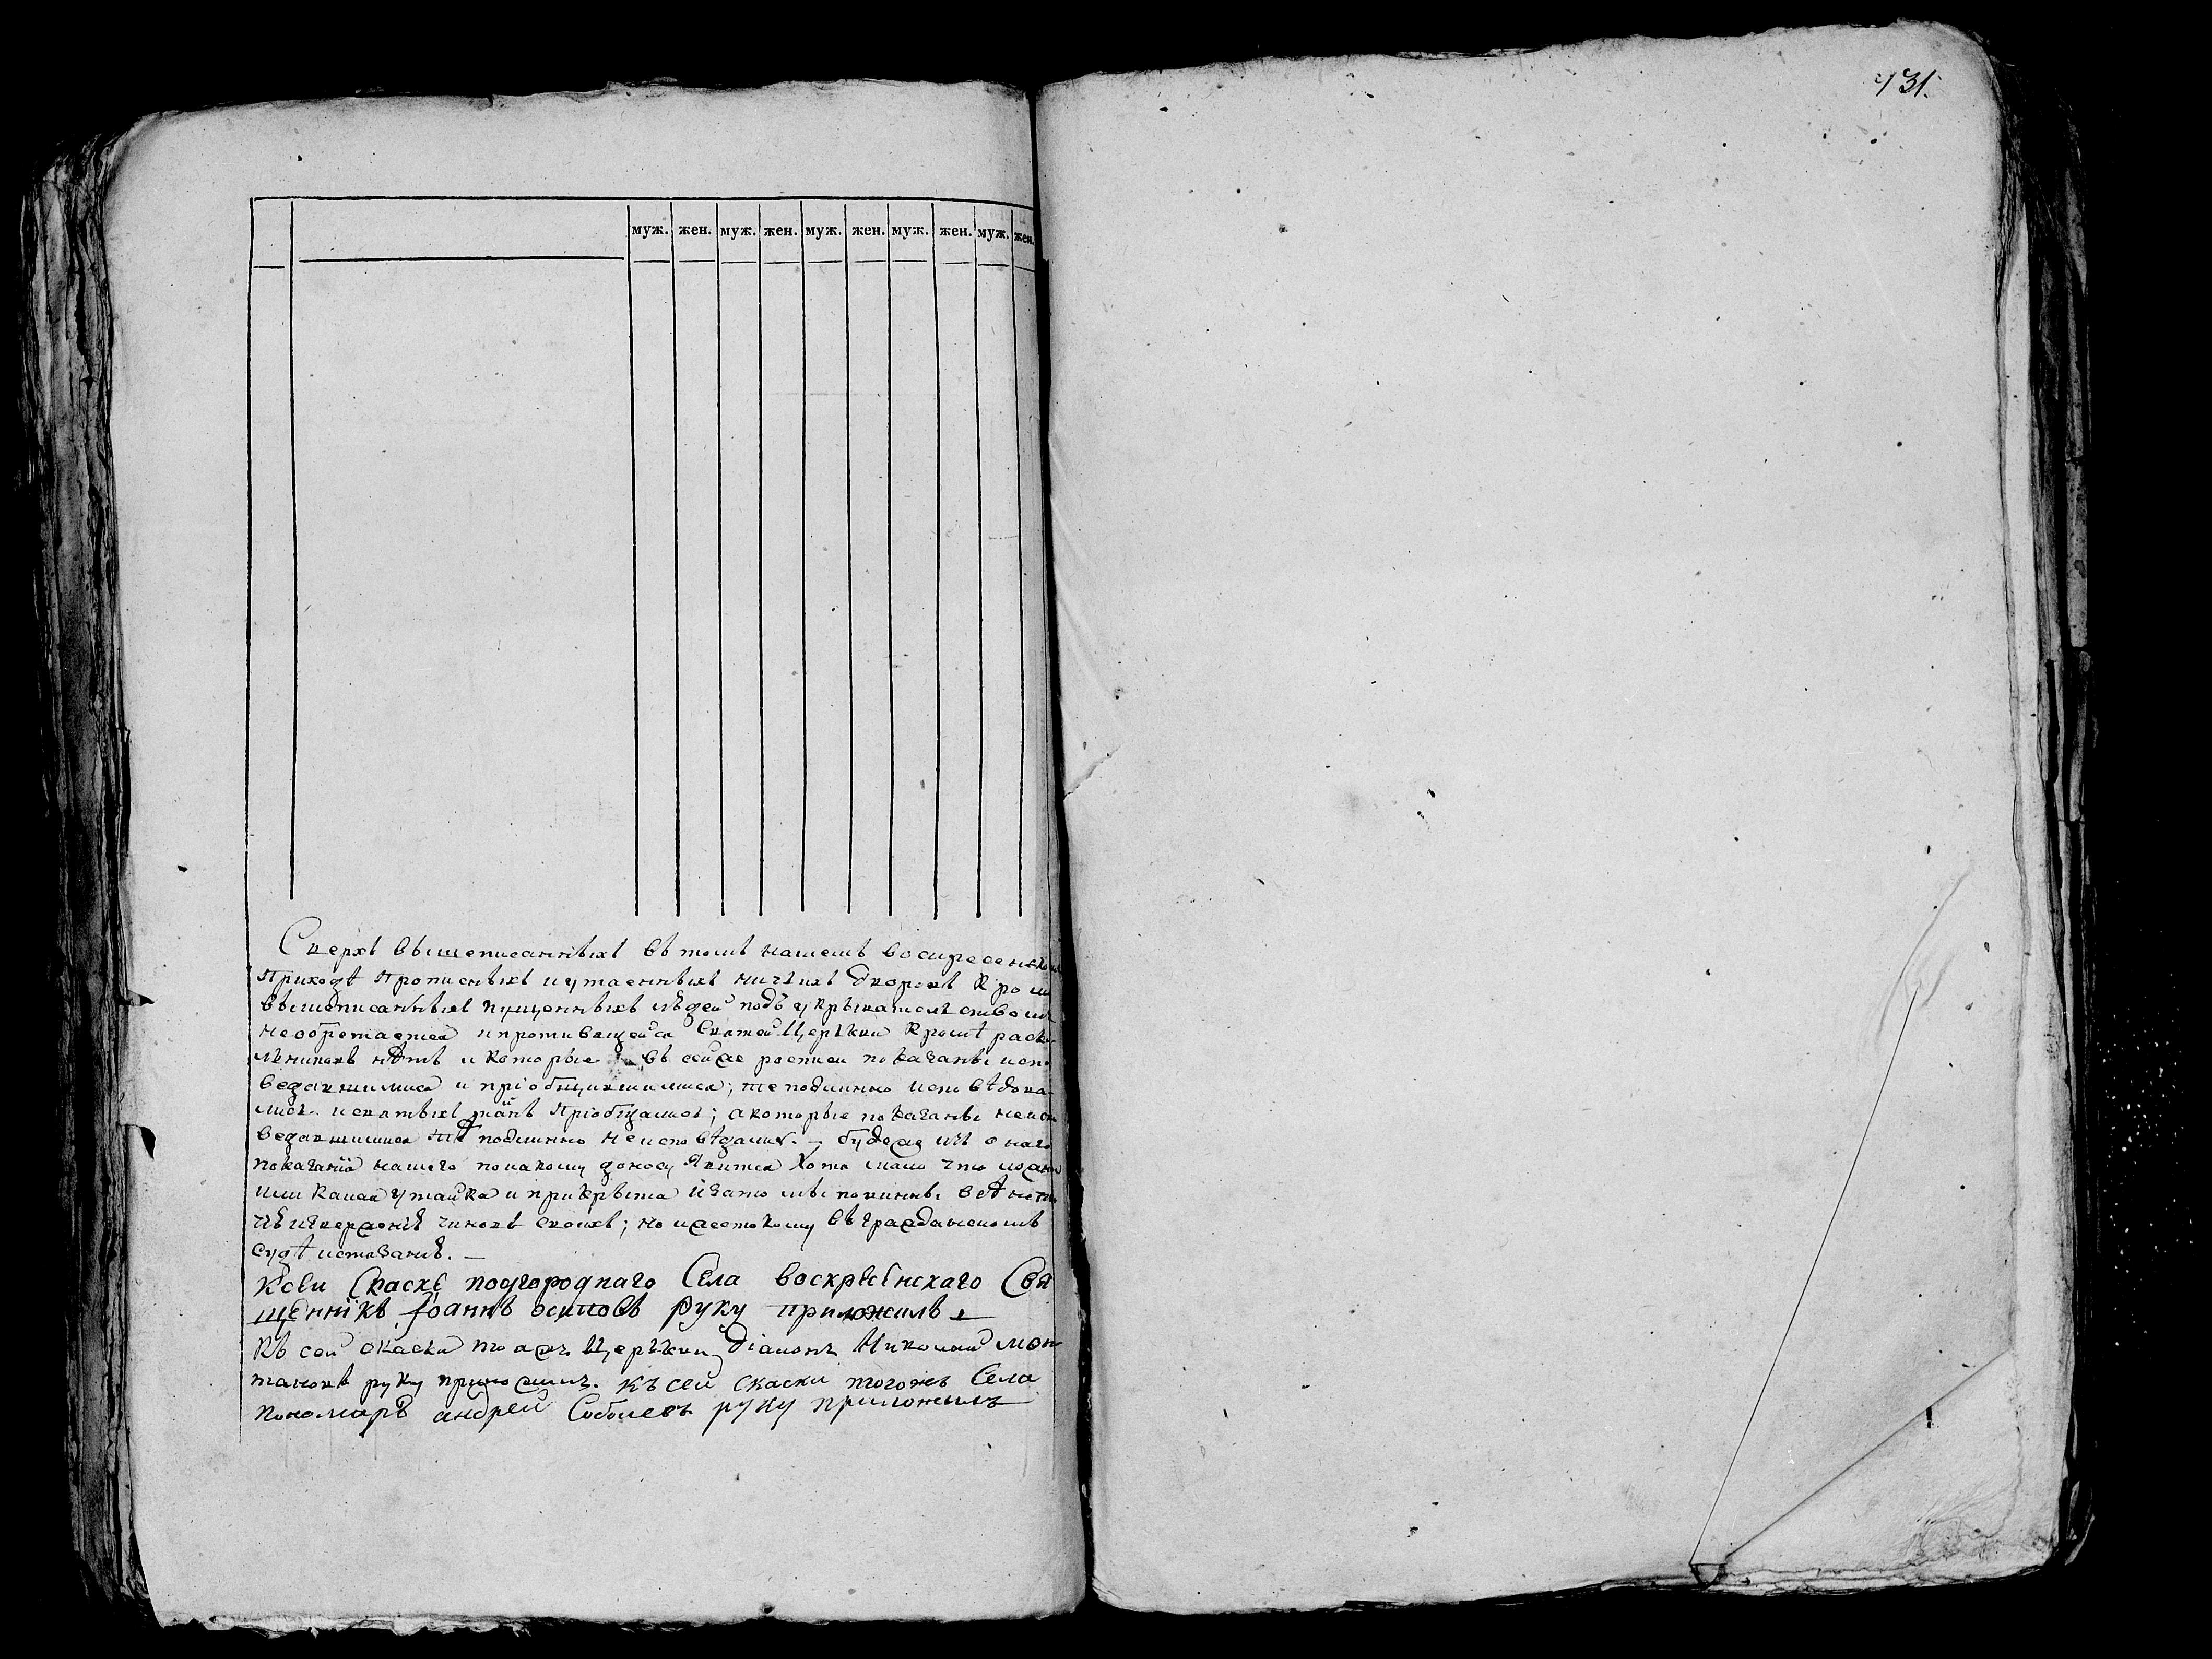 431.
муж. жен. муж. жен. муж. жен. муж. жен. муж. жен.
Сверхъ вышеписанныхъ въ томъ нашемъ воскресенско
приходѣ прописныхъ и утаенныхъ ничьихъ дворовъ кром
вышеписанныхъ пущенныхъ людей подъ укрывателствомъ
необретается и противящейся Святой Церькви кромѣ раско
льниковъ нѣтъ и которые въ сей же росписи показаны испо
ведавшимися и пріобщившимися; те подлинно исповѣдова
лись и святыхъ таинъ пріобщались; а которые показаны неиспо
ведавшимися тѣ подлинно не исповѣдались. – буде же изъ онаго
показанія нашего по какому доносу явится хотя мало что ложно
или какая утайка и прикрыта и за то мы повинны всѣ не то
чью извержѣнію чиновъ своихъ; но и жестокому въ гражданскомъ
судѣ истязанію. –
К сеи Скаске подгороднаго Села воскресенскаго Свя
щенникъ Іоаннъ осиповъ руку приложилъ
Къ сей скаски тоя жъ Церькви діаконъ Николай
тановъ руку приложилъ. къ сеи скаски тогожъ Села
пономарь андрей Соболевъ руку приложилъ